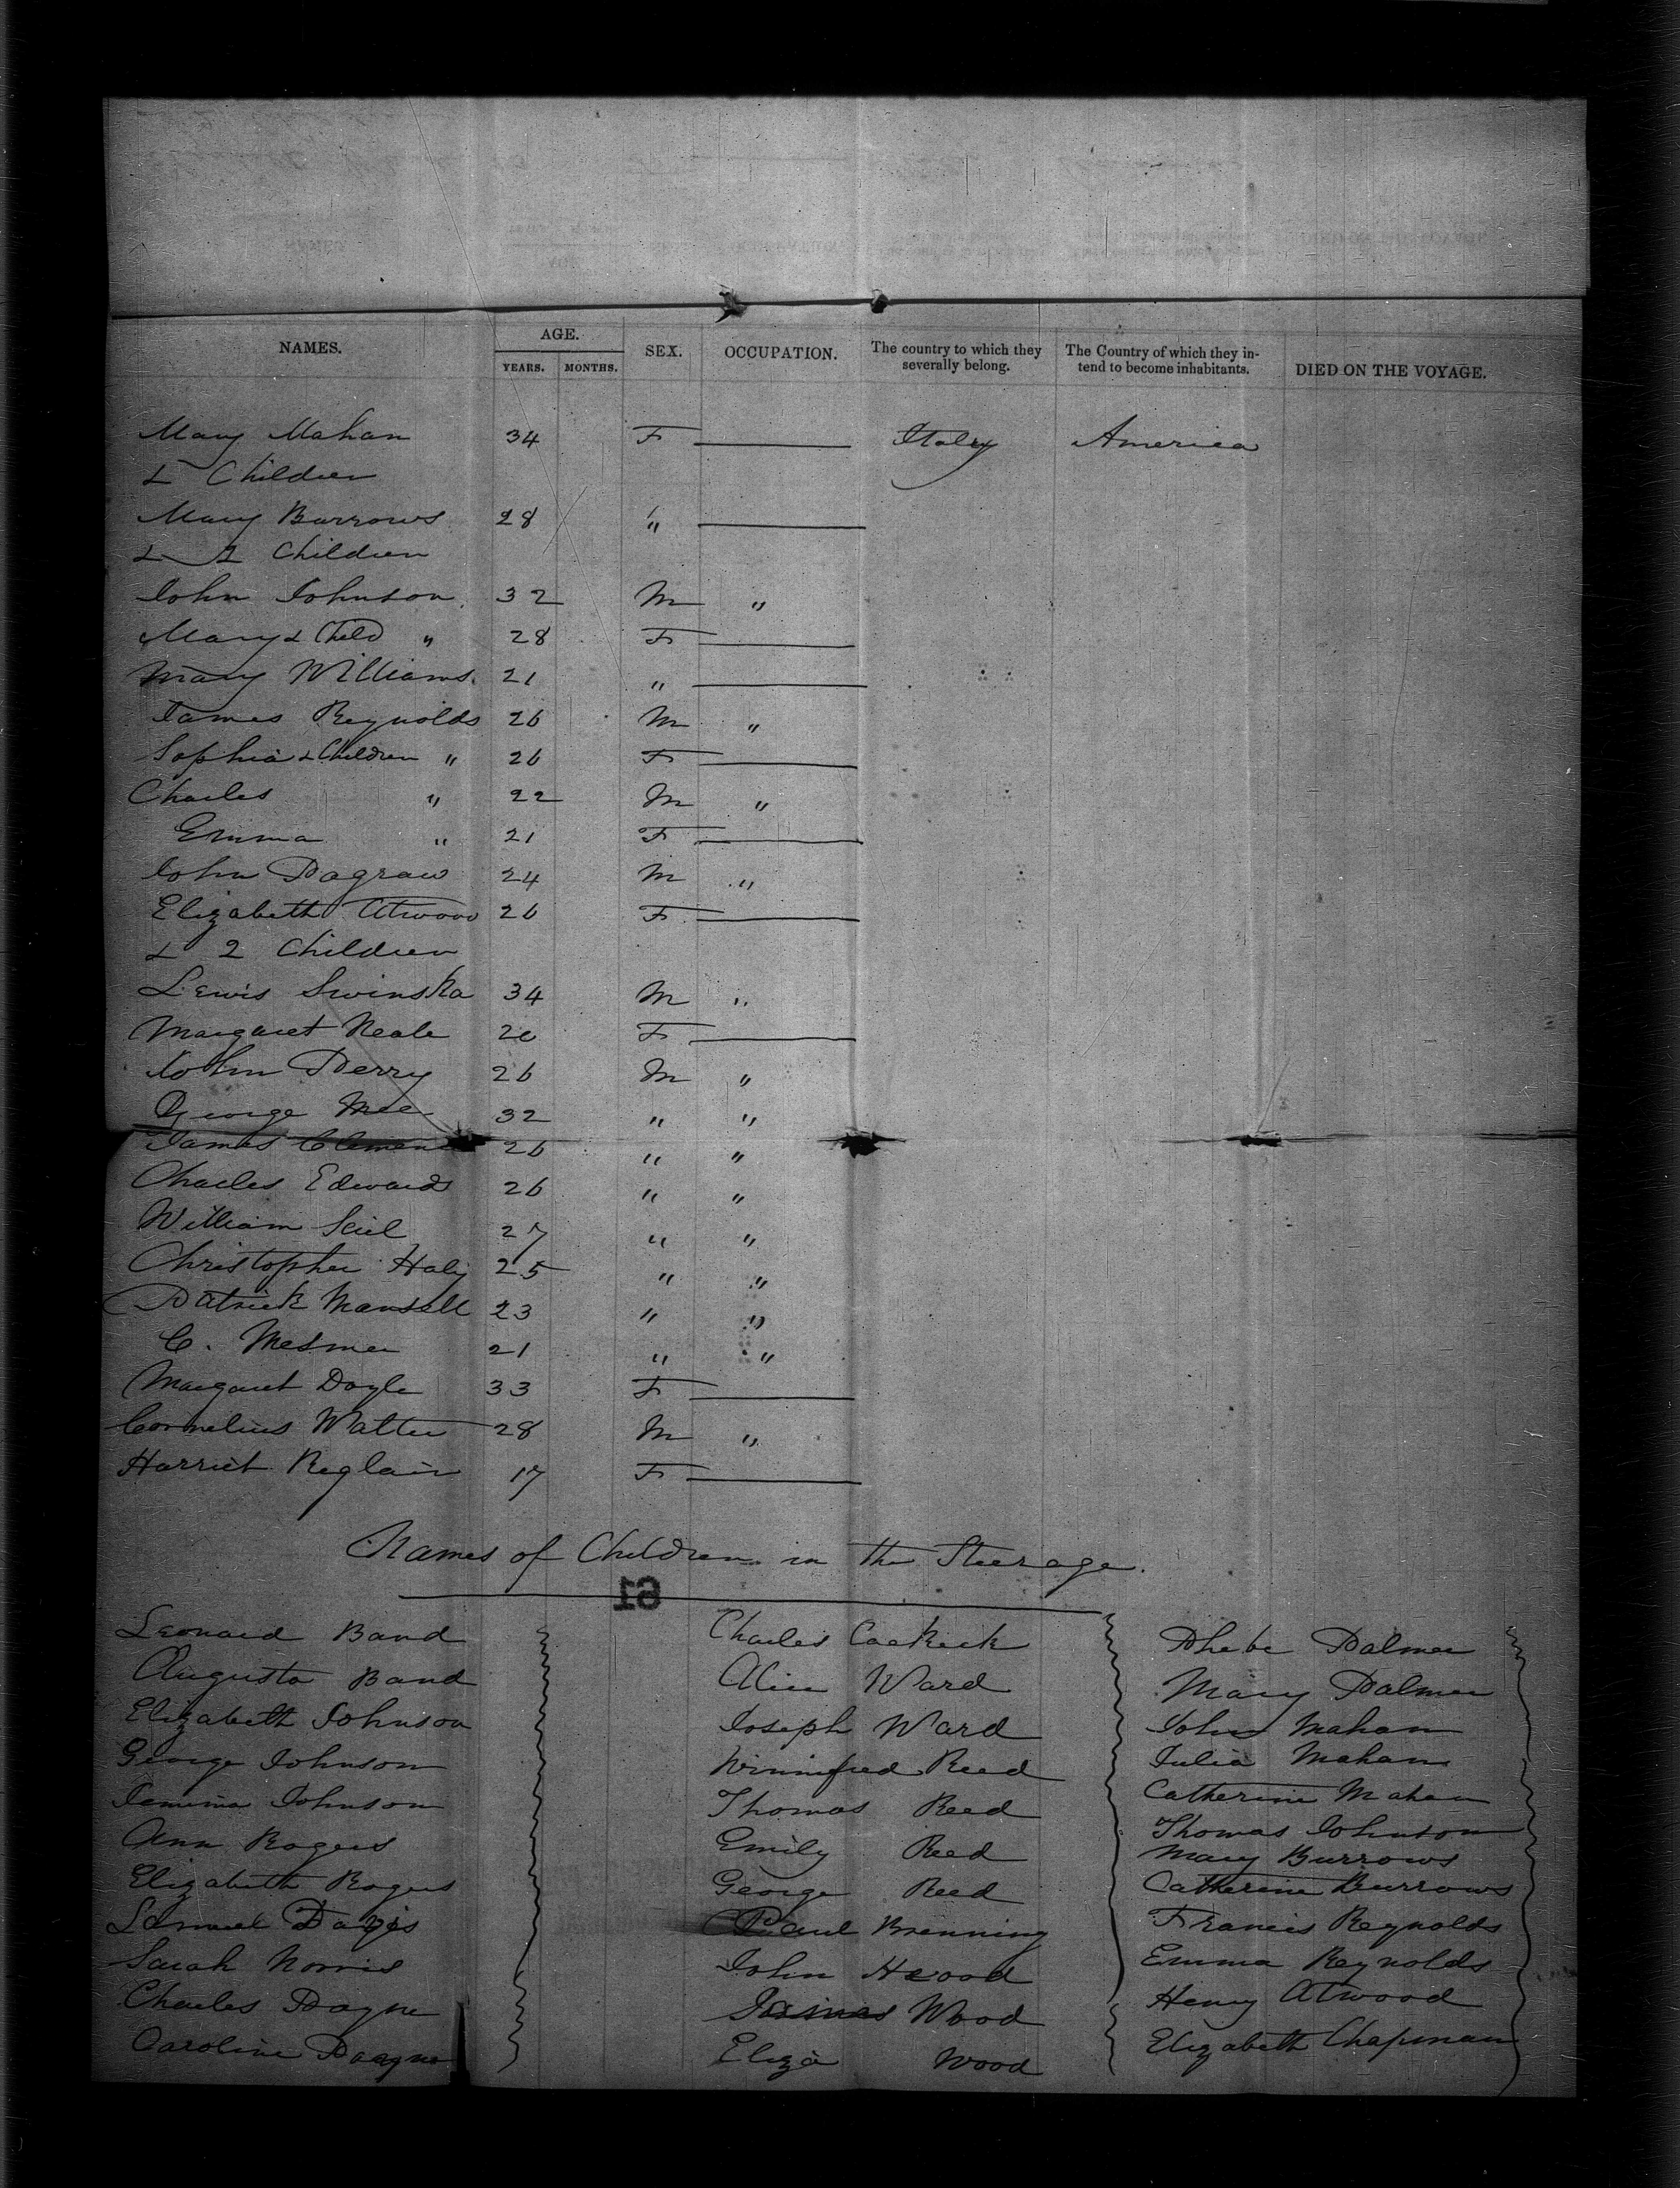 NAMES. AGE. SEX. OCCUPATION. The country to which they severally belong. The Country of which they intend to become inhabitants. DIED ON THE VOYAGE.
YEARS. MONTHS.
Mary Mahan 34 F Italy America
& Children
Mary Burrows 28 "
& 2 Children
John Johnson 32 M "
Mary & Child " 28 F
Mary Williams. 21 "
James Reynolds 26 M "
Sophia & Children " 26 F
Charles " 22 M "
Emma " 21 F
John Pagraw 24 M "
Elizabeth Atwood 26 F
& 2 Children
Lewis Swinska 34 M "
Margaret Neale 20 F
John Perry 26 M "
George Mee 32 " "
James 26 " "
Charles Edwards 26 " "
William 27 " "
Christopher Haly 25 " "
Patrick Mansell 23 " "
C. Mesmer 21 " "
Margaret Doyle 33 F
Cornelius Walter 28 M "
Harriet 17 F
Names of Children in the Steerage.
61
Leonard Band Charles Phebe Palmer
Augusta Band Alice Ward Mary Palmer
Elizabeth Johnson Joseph Ward John Mahan
George Johnson Winnifred Reed Julia Mahan
Jemima Johnson Thomas Reed Catherine Mahan
Ann Rogers Emily Reed Thomas Johnson
Elizabeth Rogers George Reed Mary Burrows
Samuel Davis Paul Brenning Catherine Burrows
Sarah Norris John Francis Reynolds
Charles Payne James Wood Emma Reynolds
Caroline Eliza Wood Henry Atwood
Elizabeth Chapman